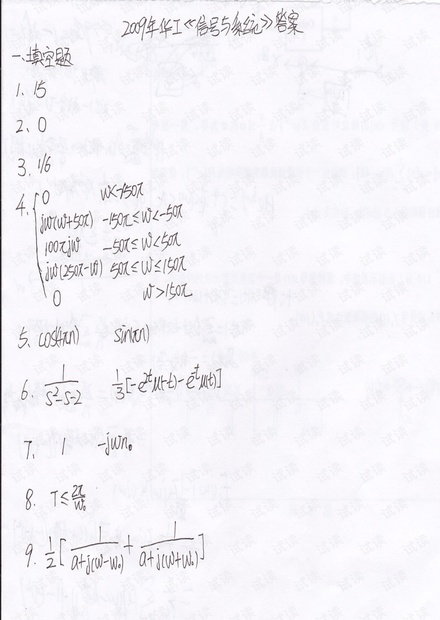 2009年华工《信号与系统》答案
一.填空题
1. 15
2. 0
3. 1/6
4. { 0 w<-150π
jw(w+50π) -150π≤w<-50π
100πjw -50π≤w<50π
jw(250π-w) 50π≤w≤150π
0 w>150π
5. cos(4πn) sin(πn)
6. 1/(s²-s-2) 1/3[-e^{2t}u(-t)-e^{-t}u(t)]
7. 1 -jwn₀
8. T≤2π/w₀
9. 1/2[1/(a+j(w-w₀))+1/(a+j(w+w₀))]